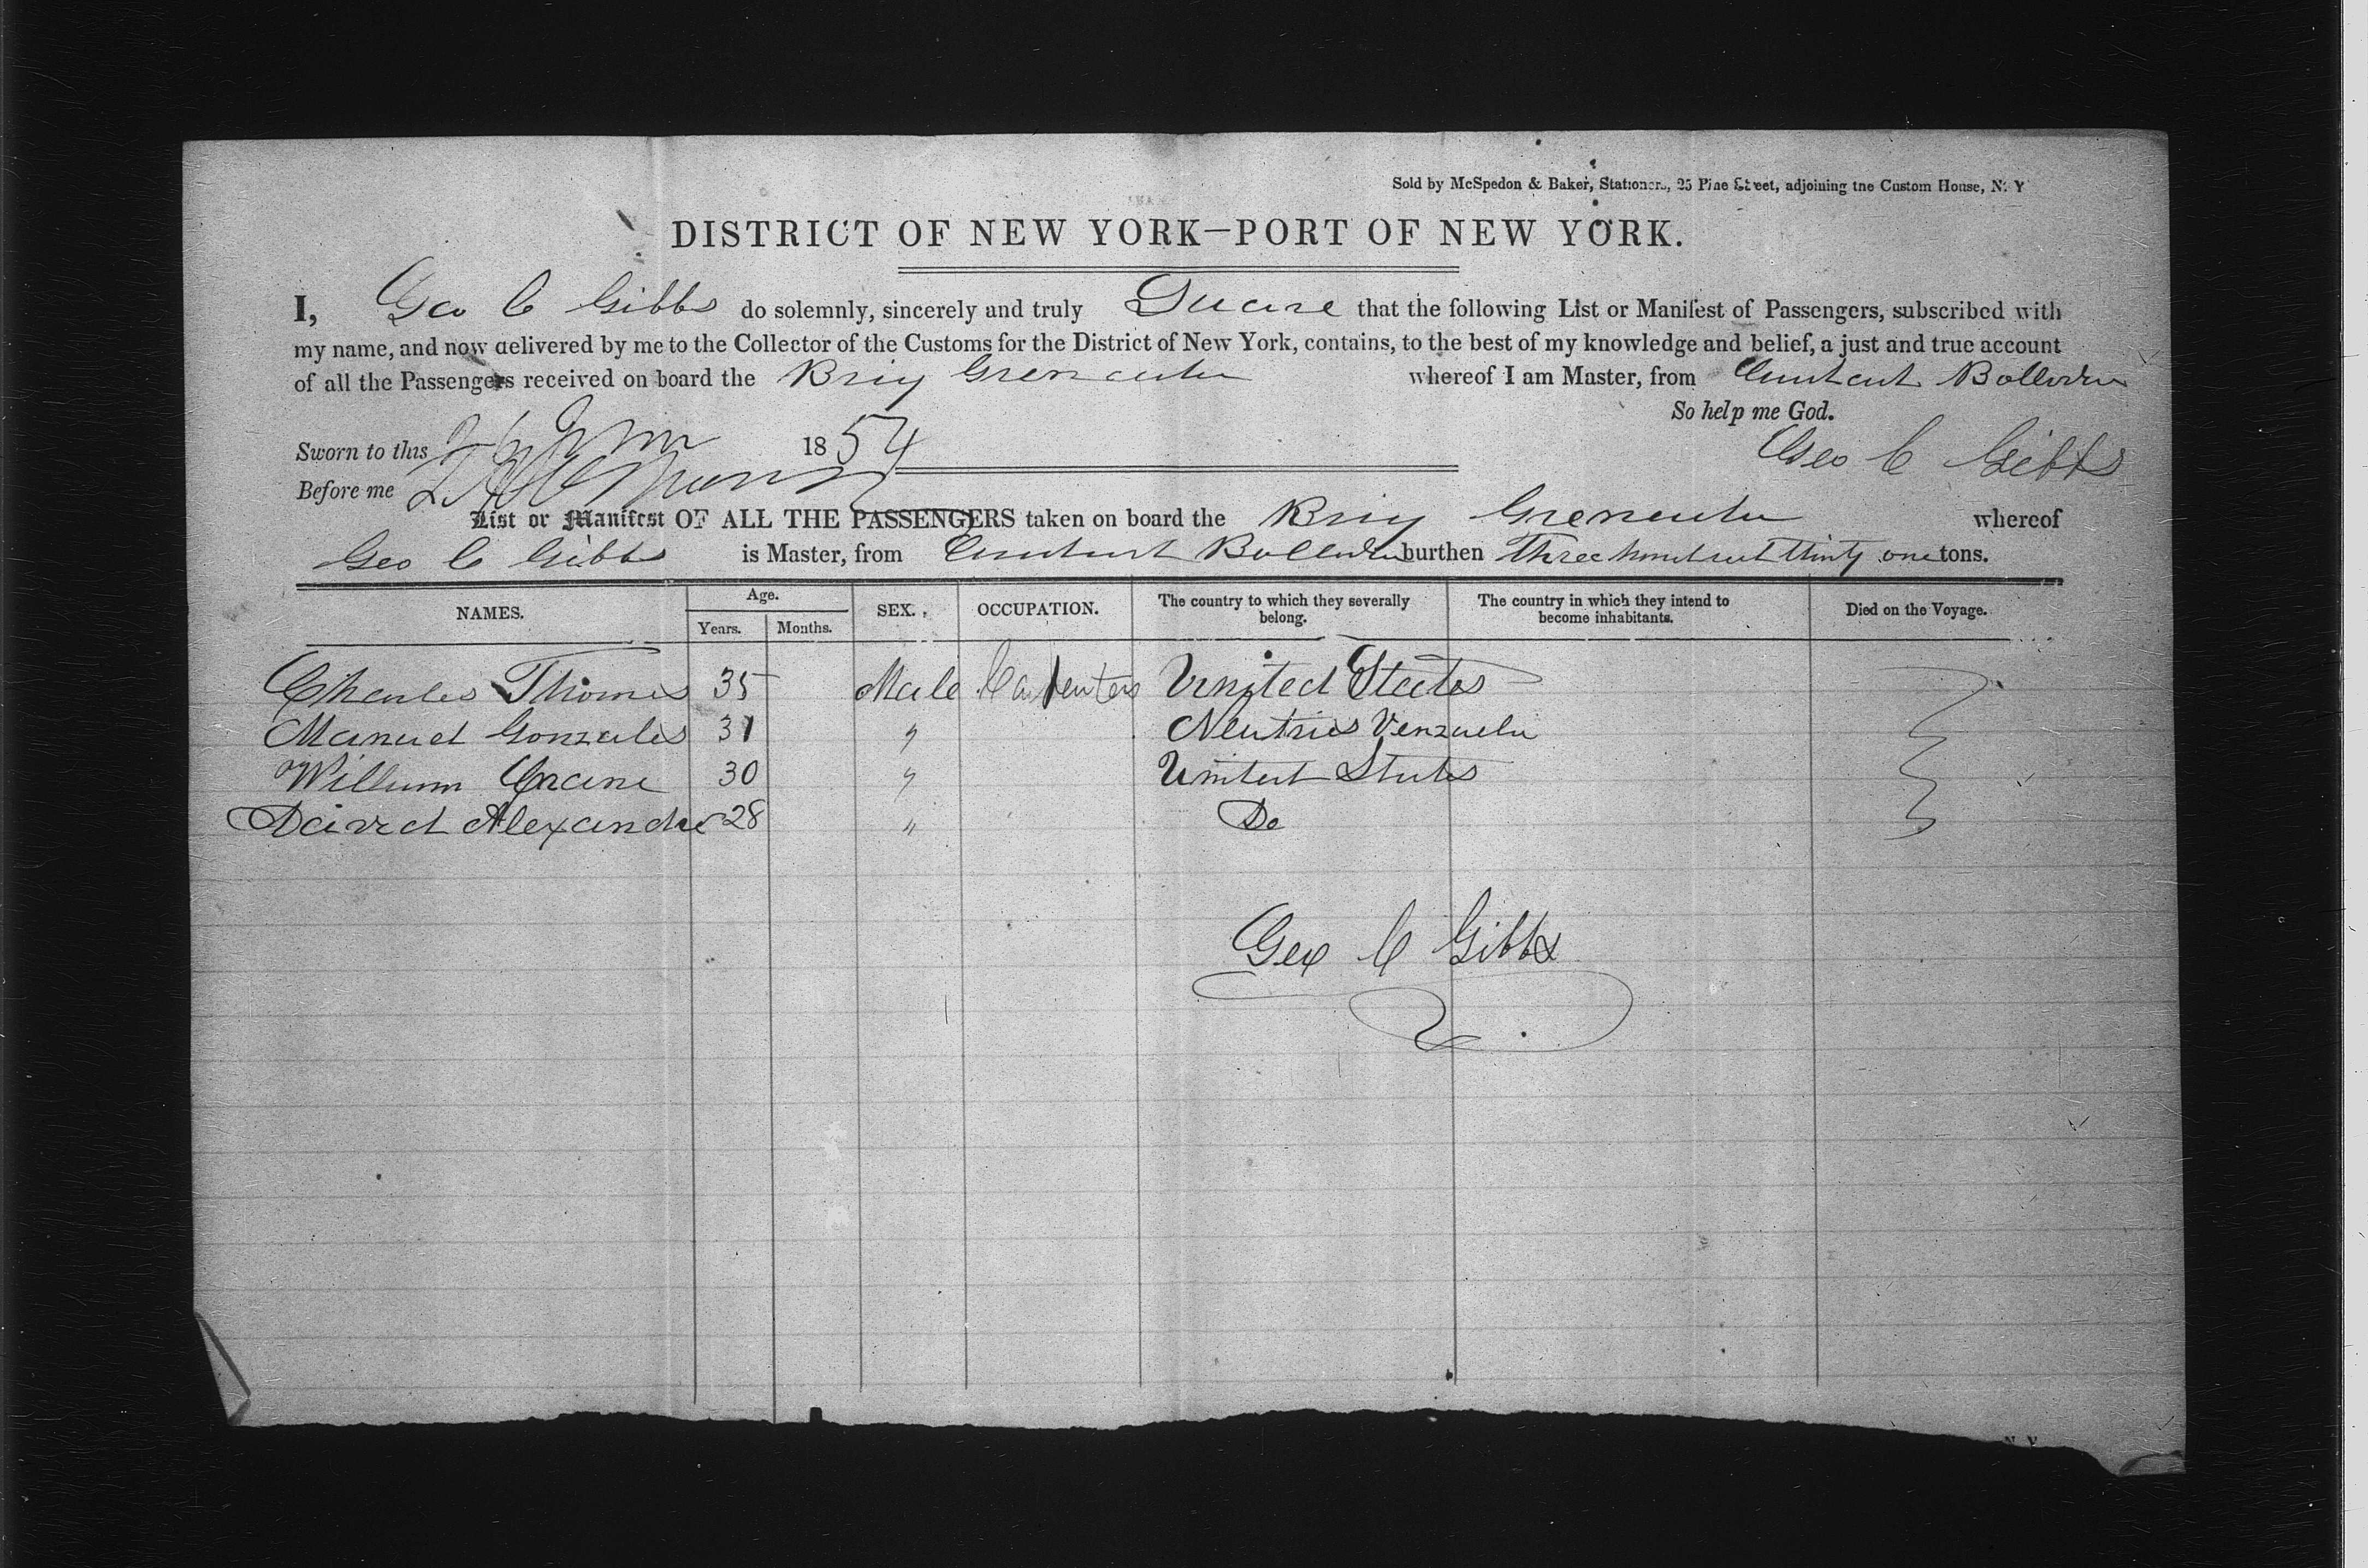 Sold by McSpedon & Baker, Stationers, 25 Pine Street, adjoining the Custom House, N. Y
DISTRICT OF NEW YORK—PORT OF NEW YORK.
I, Geo C Gibbs do solemnly, sincerely and truly that the following List or Manifest of Passengers, subscribed with
my name, and now delivered by me to the Collector of the Customs for the District of New York, contains, to the best of my knowledge and belief, a just and true account
of all the Passengers received on board the Brig Grenada whereof I am Master, from Bolivar
So help me God.
Sworn to this 1854 Geo C Gibbs
Before me
List or Manifest OF ALL THE PASSENGERS taken on board the Brig Grenada whereof
Geo C Gibbs is Master, from Bolivar burthen Three hundred thirty one tons.
NAMES. Age. Years. Months. SEX. OCCUPATION. The country to which they severally belong. The country in which they intend to become inhabitants. Died on the Voyage.
Charles Thomas 35 Male Carpenters United States
Manuel Gonzales 31 " Venzuela
William Crane 30 " United States
David Alexander 28 " Do
Geo C Gibbs
N. Y.